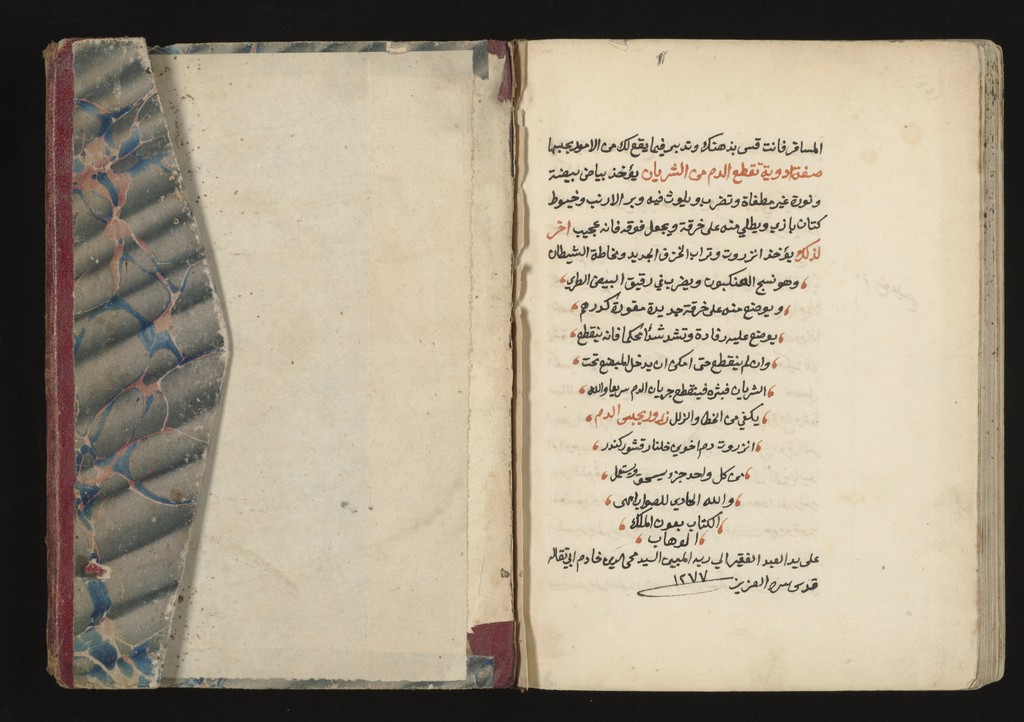 المسافر فانت قس بذهنك وتدبر فيما يقع لك من الامور بجبها
صفة ادوية تقطع الدم من الشريان يؤخذ بياض بيضة
ونورة غير مطفاة وتضرب ويلوث فيه وبر الارنب وخيوط
كتان بازى ويطلي منه على خرقة ويجعل فوقه فانه عجيب اخر
لذلك يؤخذ انزروت وتراب الخزف الجديد ومخاطة الشيطان
وهو نسج العنكبوت ويضرب في رقيق البيض الطري
ويوضع منه على خرقة جديدة مقورة كدرهم
يوضع عليه رفادة وتشد شدا محكما فانه ينقطع
وان لم ينقطع حتى امكن ان يدخل المبضع تحت
الشريان فبتره فينقطع جريان الدم سريعا والله
يكفي من الخطا والزلل زرور يحبس الدم
انزروت دم اخوين جلنار قشور كندر
من كل واحد جزء يسحق ويستعمل
والله الهادي للصواب انتهى
الكتاب بعون الملك
الوهاب
على يد العبد الفقير الى ربه المبين السيد محي الدين خادم ابي تقاله
قدس سره العزيز ١٢٧٧